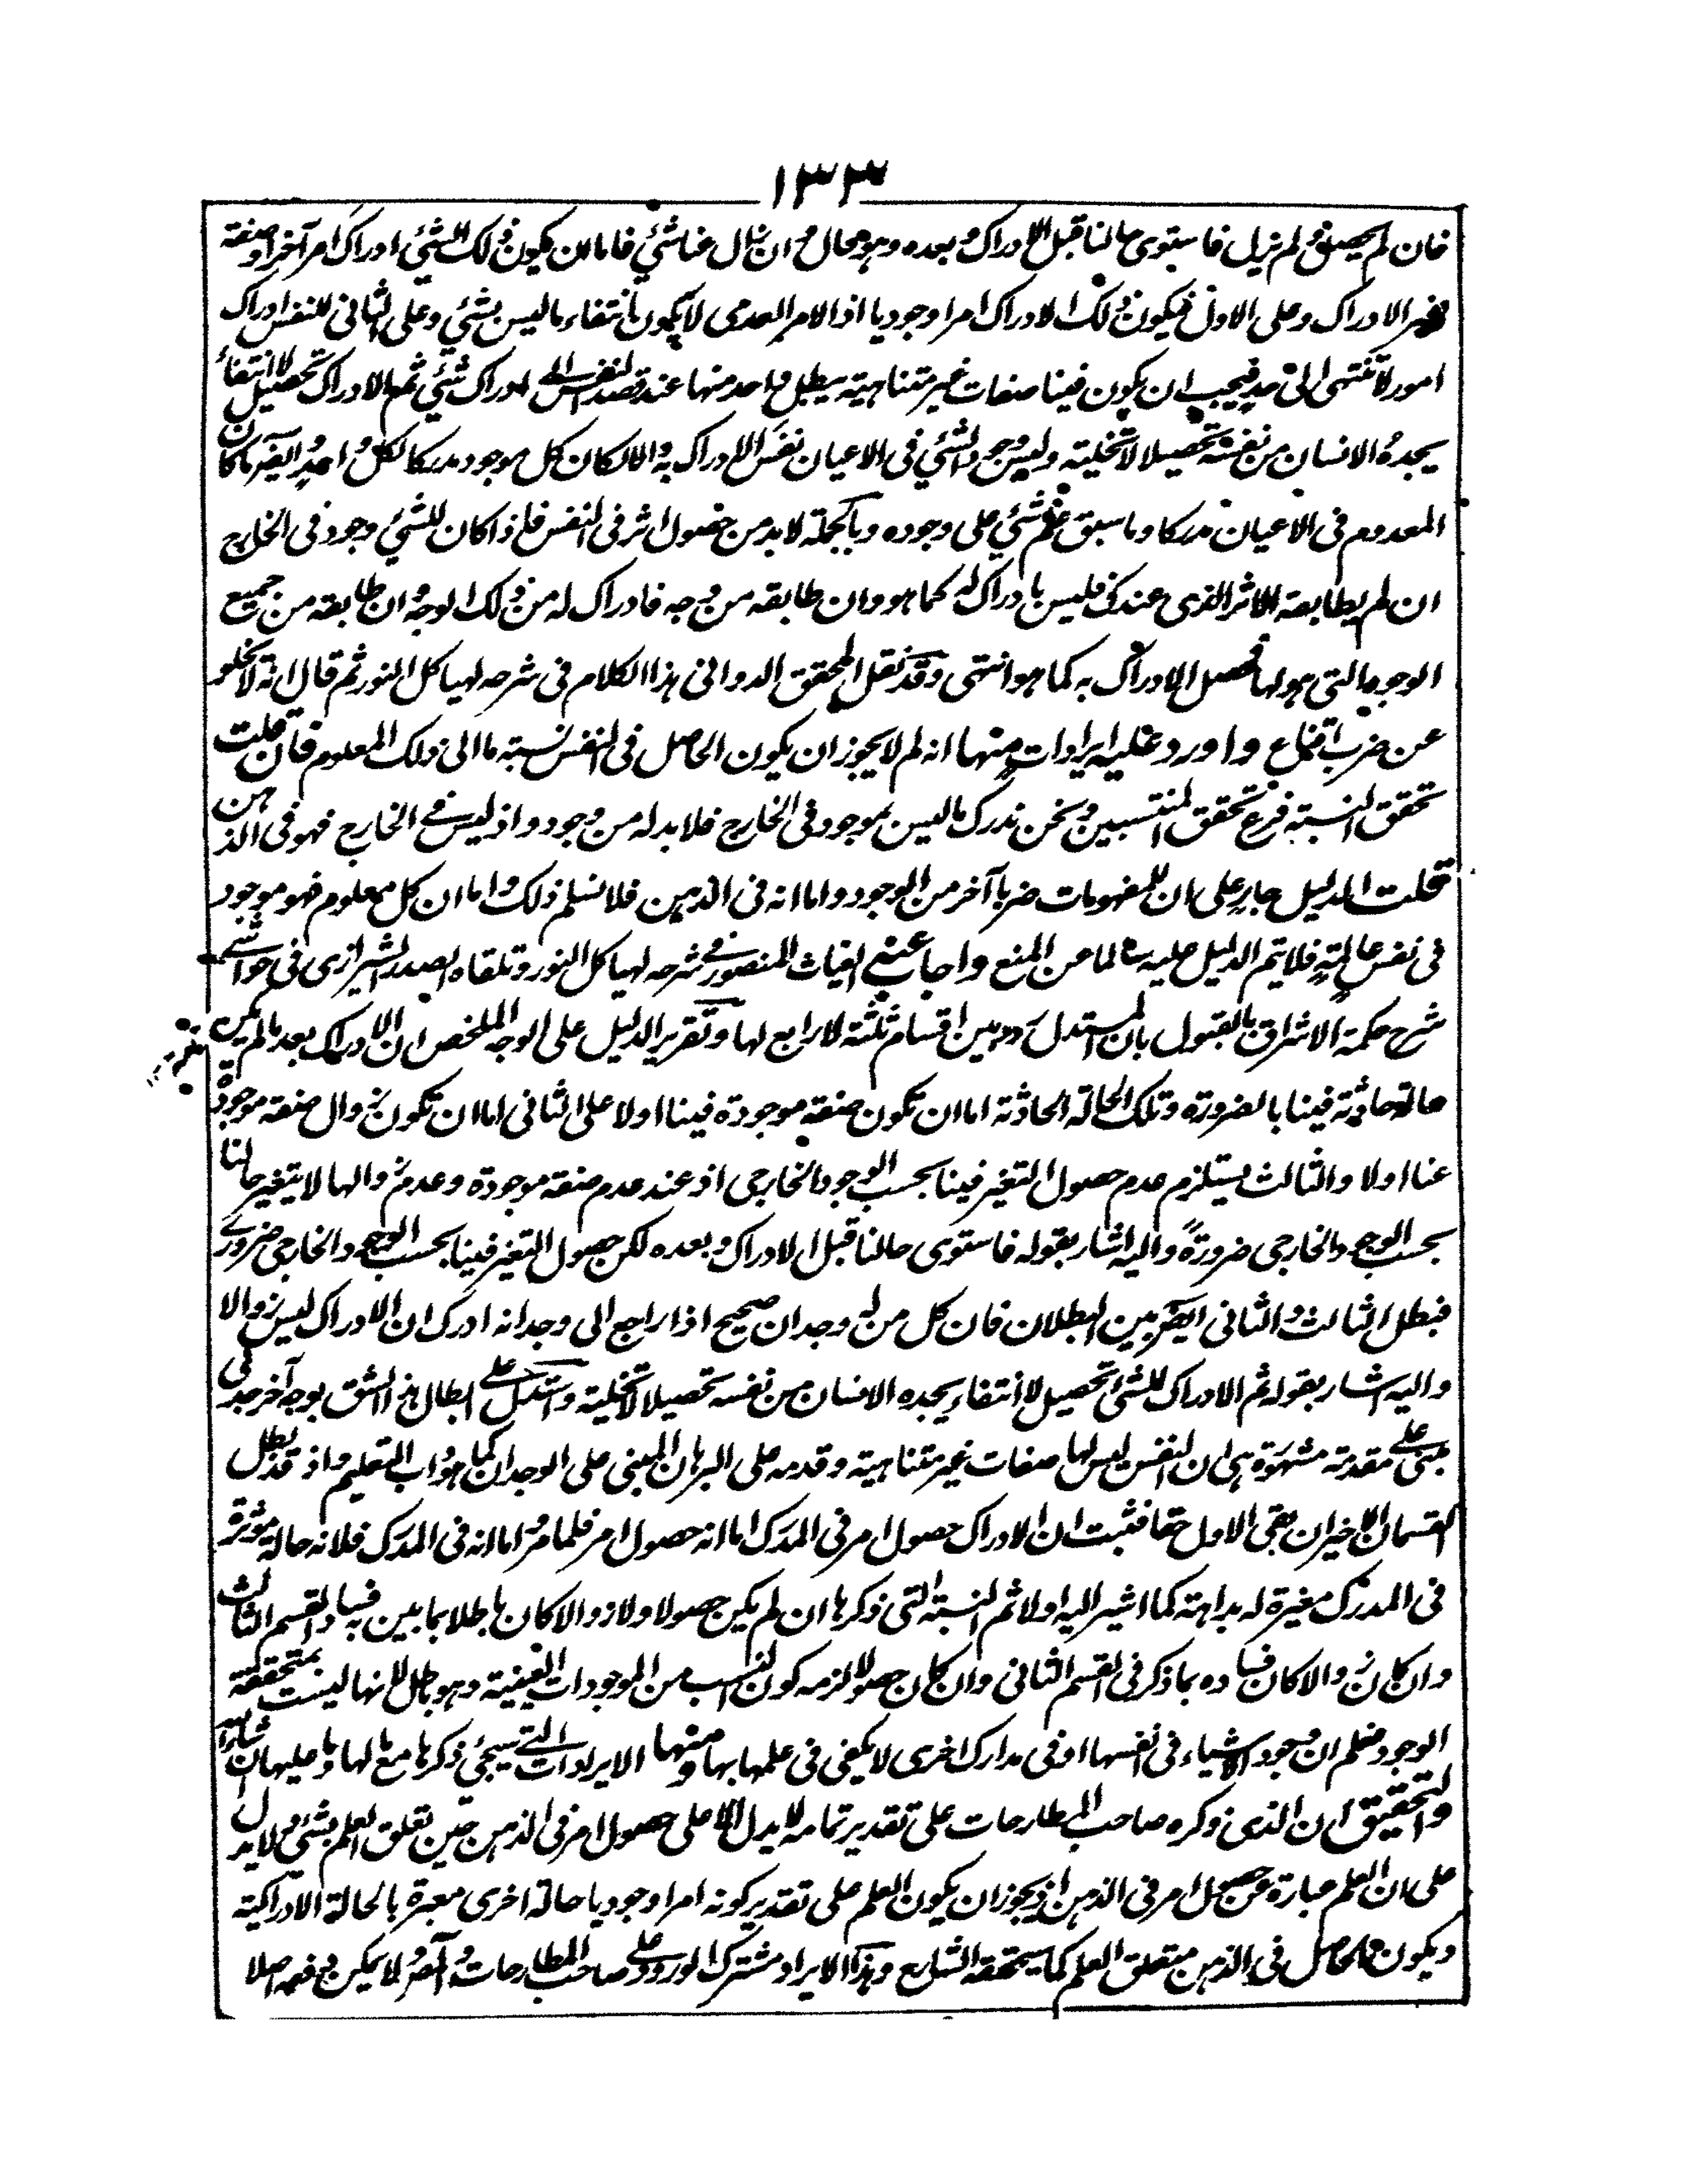 ١٣٣
فان لم يحصل و لم يزل فاستوى حالنا قبل الادراك و بعده وهو محال و ان زال عنا شئي فاما ان يكون ذلك الشئي ادراك امر آخر او صفة
غير الادراك وعلى الاول فيكون ذلك الادراك امرا وجوديا اذ الامر العدمى لا يكون بانتفاء ما ليس بشئي وعلى الثانى للنفس ادراك
امور لا تنتهى الى حد فيجب ان يكون فينا صفات غير متناهية يبطل واحد منها عند قصد النفس الى ادراك شئي ثم الادراك تحصيل لا انتفاء
يجده الانسان من نفسه تحصيلا لا تخلية وليس وجود الشئي فى الاعيان نفس الادراك به والا لكان كل موجود مدركا لكل واحد وايضا ما كان
المعدوم فى الاعيان مدركا وما سبق علم شئي على وجوده وبالجملة لابد من حصول اثر فى النفس فاذا كان للشئي وجود فى الخارج
ان لم يطابقه الاثر الذى عندك فليس بادراك له كما هو وان طابقه من وجه فادراك له من ذلك الوجه وان طابقه من جميع
الوجوه التى هو لها فحصل الادراك به كما هو انتهى وقد نقل المحقق الدوانى هذا الكلام فى شرحه لهياكل النور ثم قال انه لا يخلو
عن ضرب اقناع و اورد عليه ايرادات منها انه لم لا يجوز ان يكون الحاصل فى النفس نسبة ما الى ذلك المعلوم فان قلت
تحقق النسبة فرع تحقق المنتسبين ونحن ندرك ما ليس بموجود فى الخارج فلابد له من وجود واذ ليس فى الخارج فهو فى الذهن
قلت الدليل جار على ان للمفهومات ضربا آخر من الوجود واما انه فى الذهن فلا نسلم ذلك واما ان كل معلوم فهو موجود
فى نفس عالمة فلا يتم الدليل عليه سالما عن المنع واجاب عنه الغياث المنصور فى شرحه لهياكل النور وتلقاه الصدر الشيرازى فى حواشى
شرح حكمة الاشراق بالقبول بان المستدل ردد بين اقسام ثلثة لا رابع لها وتقرير الدليل على الوجه الملخص ان الادراك بعد ما لم يكن
حالة حادثة فينا بالضرورة وتلك الحالة الحادثة اما ان تكون صفة موجودة فينا اولا على الثانى اما ان تكون زوال صفة موجودة
عنا اولا والثالث يستلزم عدم حصول التغير فينا بحسب الوجود الخارجى اذ عند عدم صفة موجودة وعدم زوالها لا يتغير حالنا
بحسب الوجود الخارجى ضرورة واليه اشار بقوله فاستوى حالنا قبل الادراك وبعده لكن حصول التغير فينا بحسب الوجود الخارجى ضرورى
فبطل الثالث والثانى ايضا بين البطلان فان كل من له وجدان صحيح اذا راجع الى وجدانه ادرك ان الادراك ليس زوالا
واليه اشار بقوله ثم الادراك للشئ تحصيل لا انتفاء يجده الانسان من نفسه تحصيلا لا تخلية واستدل على ابطال هذا الشق بوجه آخر جدلى
مبنى على مقدمة مشهورة هى ان النفس ليس لها صفات غير متناهية وقدمه على البرهان المبنى على الوجدان كما هو داب التعليم واذ قد بطل
القسمان الاخيران بقى الاول حقا فثبت ان الادراك حصول امر فى المدرك اما انه حصول امر فلما مر واما انه فى المدرك فلانه حالة مؤثرة
فى المدرك مغيرة له بداهة كما اشير اليه اولا ثم النسبة التى ذكرها ان لم يكن حصولا ولا زوالا كان باطلا بما بين فساد القسم الثالث
وان كان زوالا كان فساده بما ذكر فى القسم الثانى وان كان حصولا لزمه كون النسب من الموجودات العينية وهو باطل لانها ليست بمتحققة
الوجود فعلم ان وجود الاشياء فى انفسها او فى مدارك اخرى لا يكفى فى علمها بها ومنها الايرادات التى سيجئ ذكرها مع مالها وما عليها ان شاء الله
والتحقيق ان الذى ذكره صاحب المطارحات على تقدير تمامه لا يدل الا على حصول امر فى الذهن حين تعلق العلم بشئ ولا يدل
على ان العلم عبارة عن حصول امر فى الذهن اذ يجوز ان يكون العلم على تقدير كونه امرا وجوديا حالة اخرى معبرة بالحالة الادراكية
ويكون الحاصل فى الذهن متعلق العلم كما سيحققه الشارع وهذا الايراد مشترك الورود على صاحب المطارحات لا يمكن دفعه اصلا